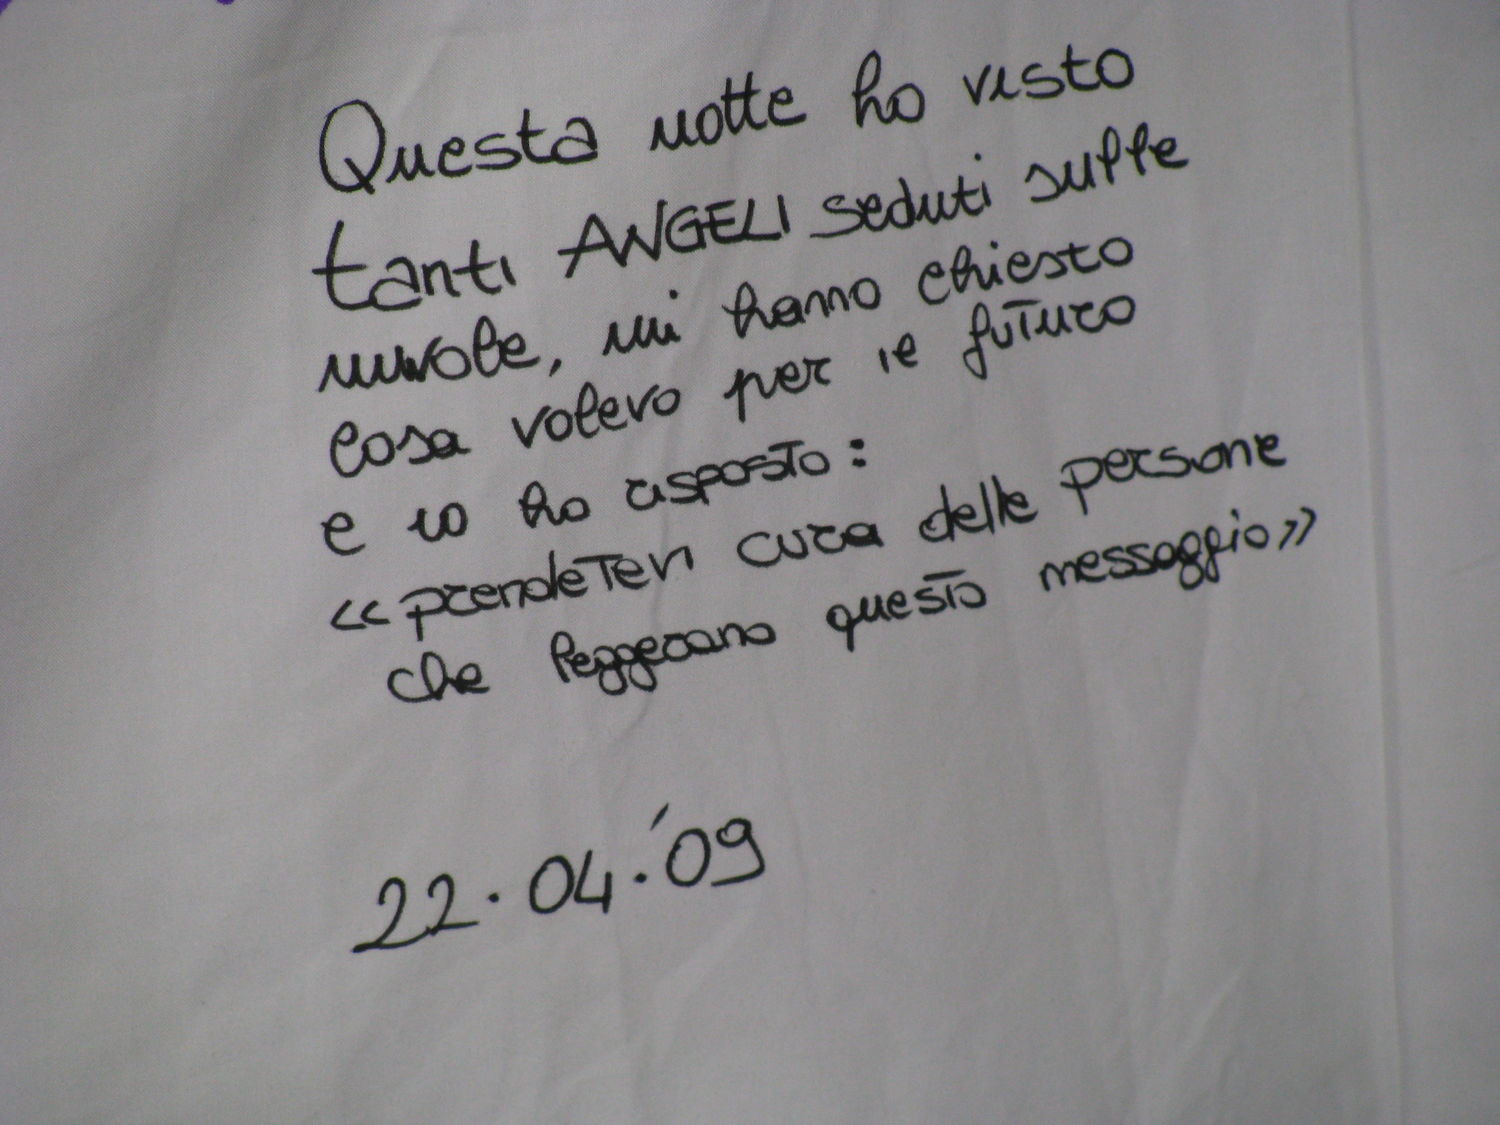 Questa notte ho visto
tanti ANGELI seduti sulle
nuvole, mi hanno chiesto
cosa volevo per il futuro
e io ho risposto:
<<prendetevi cura delle persone
che leggerano questo messaggio>>
22.04.'09